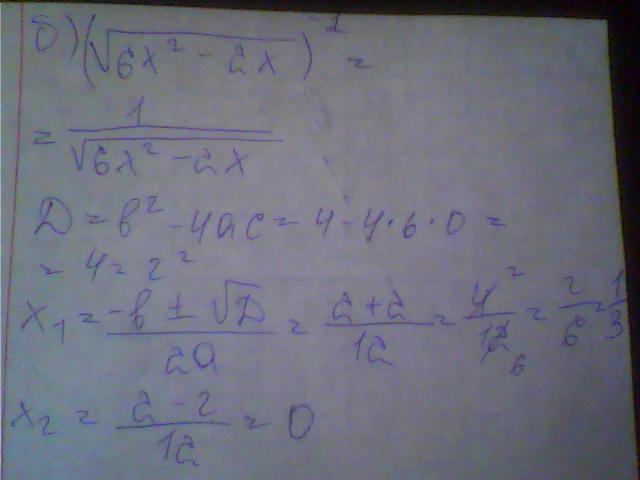 б) (√6x² - 2x)⁻¹ =
= 1/√6x² - 2x
D = b² - 4ac = 4 - 4·6·0 =
= 4 = 2²
x₁ = -b ± √D/2a = 2+2/12 = 4/12 ² ₆ = 2/6 = 1/3
x₂ = 2-2/12 = 0